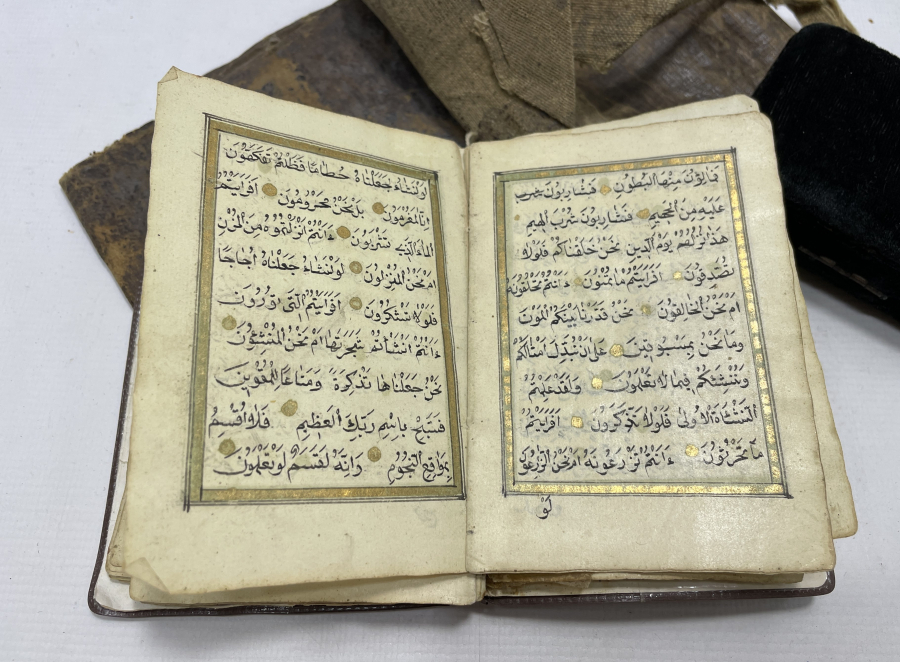 فمالؤن منها البطون فشاربون
عليه من الحميم فشاربون شرب الهيم
هذا نزلهم يوم الدين نحن خلقناكم فلولا
تصدقون افرايتم ما تمنون ءانتم تخلقونه
ام نحن الخالقون نحن قدرنا بينكم الموت
وما نحن بمسبوقين على ان نبدل امثالكم
وننشئكم فيما لا تعلمون ولقد علمتم
النشاة الاولى فلولا تذكرون افرايتم
ما تحرثون ءانتم تزرعونه ام نحن الزارعون
لو
لو نشاء لجعلناه حطاما فظلتم تفكهون
انا لمغرمون بل نحن محرومون افرايتم
الماء الذي تشربون ءانتم انزلتموه من المزن
ام نحن المنزلون لو نشاء جعلناه اجاجا
فلولا تشكرون افرايتم التى تورون
ءانتم انشاتم شجرتها ام نحن المنشؤن
نحن جعلناها تذكرة ومتاعا للمقوين
فسبح باسم ربك العظيم فلا اقسم
بمواقع النجوم وانه لقسم لو تعلمون